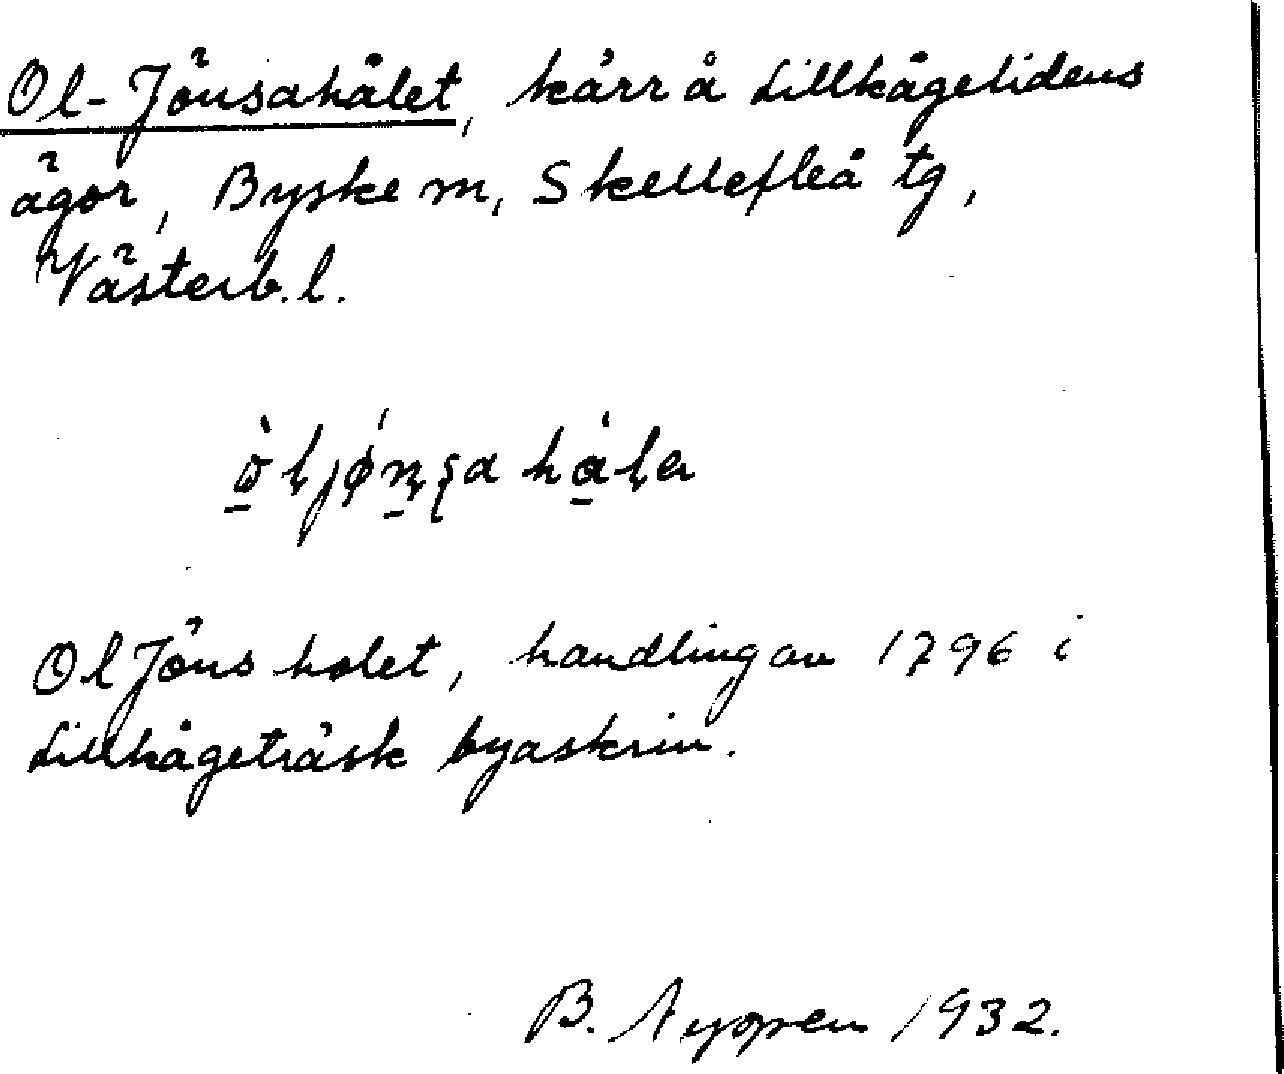 Ol-Jönsahålet, kärr å Lillkågelidens
ägor, Byske sn, Skellefteå tg,
Västerb. l.
Ol Jöns holet, handlingar 1796 i
Lillkågeträsk byaskrin.
1932.